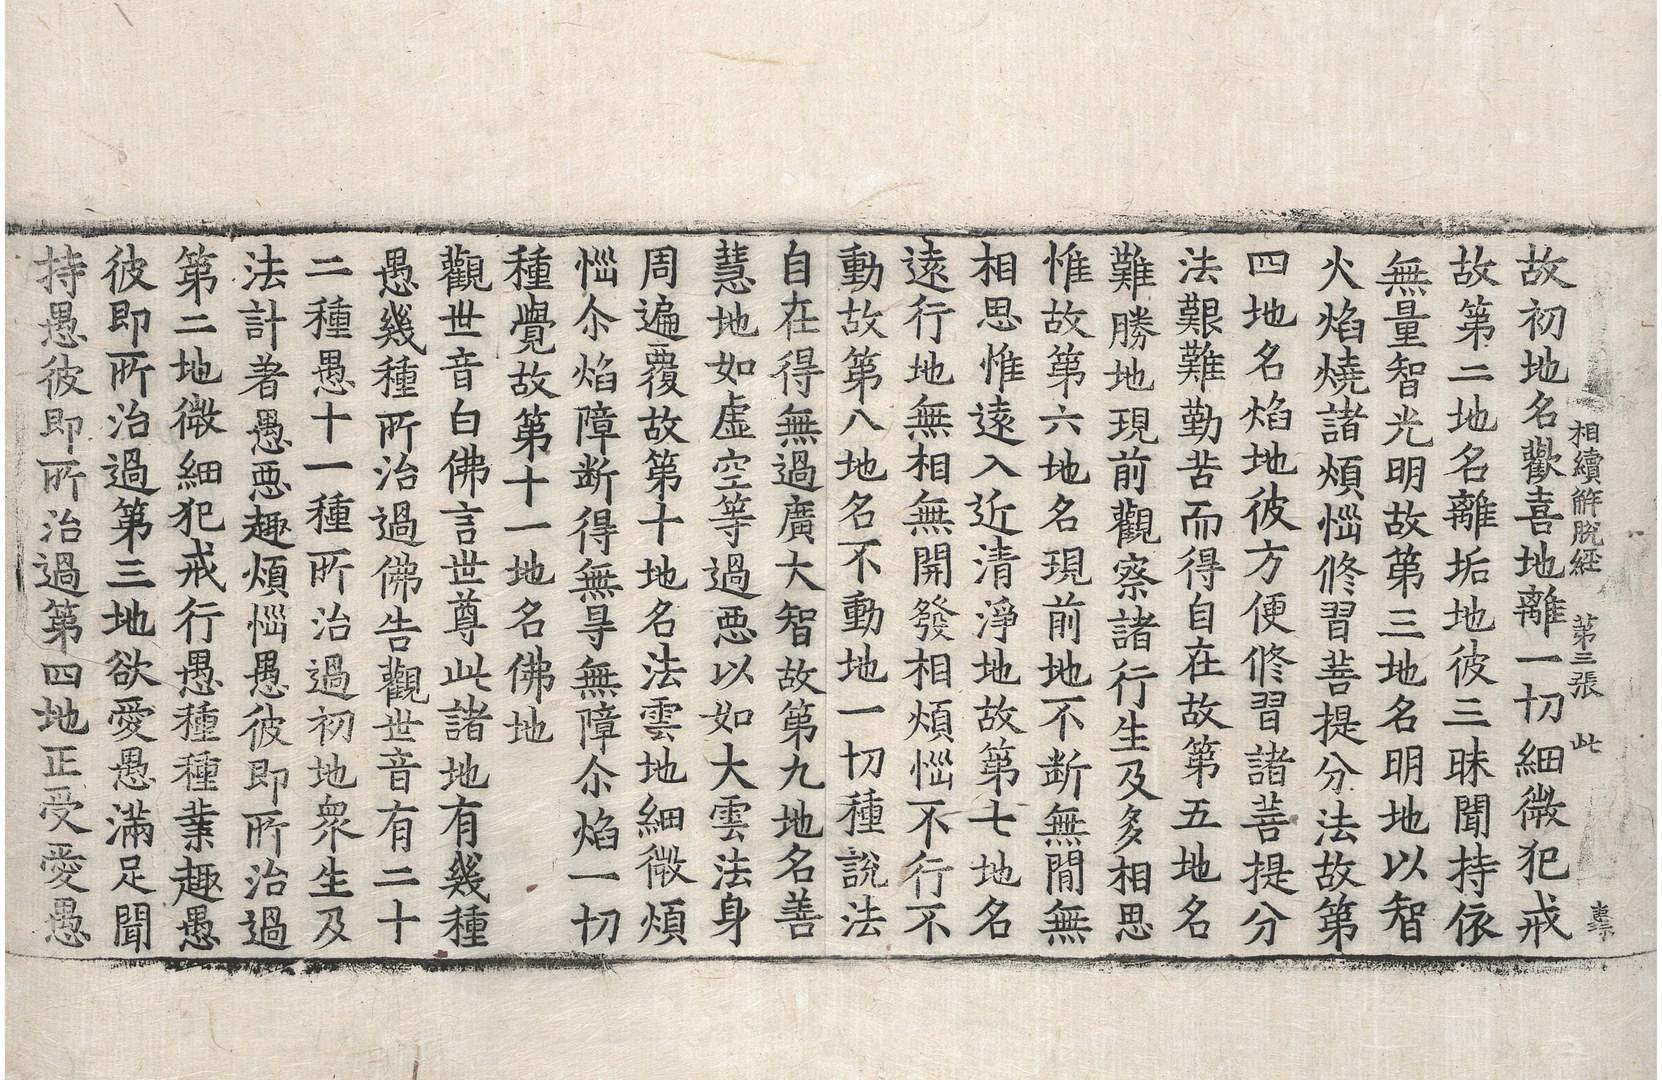 相續解脫經 第三張 此
故初地名歡喜地離一切細微犯戒
故第二地名離垢地彼三昧聞持依
無量智光明故第三地名明地以智
火焰燒諸煩惱修習菩提分法故第
四地名焰地彼方便修習諸菩提分
法艱難勤苦而得自在故第五地名
難勝地現前觀察諸行生及多相思
惟故第六地名現前地不断無閒無
相思惟遠入近清淨地故第七地名
遠行地無相無開發相煩惱不行不
動故第八地名不動地一切種說法
自在得無過廣大智故第九地名善
慧地如虛空等過惡以如大雲法身
周遍覆故第十地名法雲地細微煩
惱尒焰障断得無㝵無障尒焰一切
種覺故第十一地名佛地
觀世音白佛言世尊此諸地有幾種
愚幾種所治過佛告觀世音有二十
二種愚十一種所治過初地衆生及
法計著愚惡趣煩惱愚彼即所治過
第二地微細犯戒行愚種種業趣愚
彼即所治過第三地欲愛愚滿足聞
持愚彼即所治過第四地正受愛愚